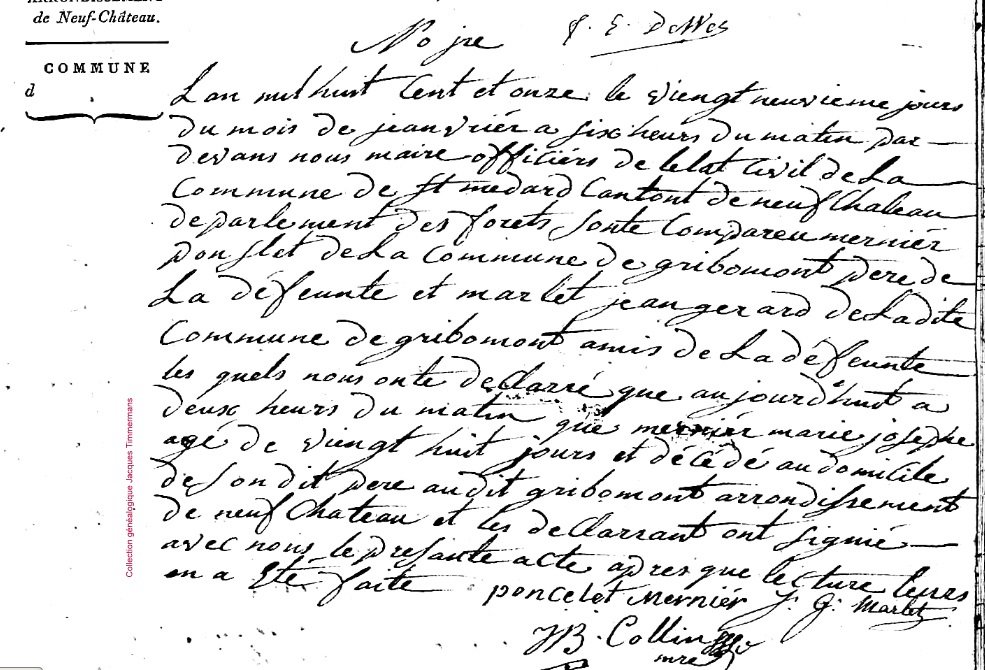 ARRONDISSEMENT
de Neuf-Château.
COMMUNE
d
No jre
L'an mil huit Cent et onze le viengt neuvieme jours
du mois de jeanvriér a six heurs du matin par
devans nous maire officiérs de letat Civil de La
Commune de St medard Cantont de neufChateau
departement des forets sonte Compareu merniér
ponslet de La Commune de gribomont pere de
La défeunte et marlet jean gerard de Ladite
Commune de gribomont amis de La défeunte
les quels nous onte deClarré que aujourd'huit a
deux heurs du matin que merniér marie josephe
agé de viengt huit jours et décédé au domicile
de son dit pere audit gribomont arrondissement
de neufChateau et les deClarrant ont signié
avec nous le presante acte apres que lecture leurs
en a Eté faite
poncelet Merniér J. G. Marlet
JB. Collin
mre
Collection généalogique Jacques Timmermans